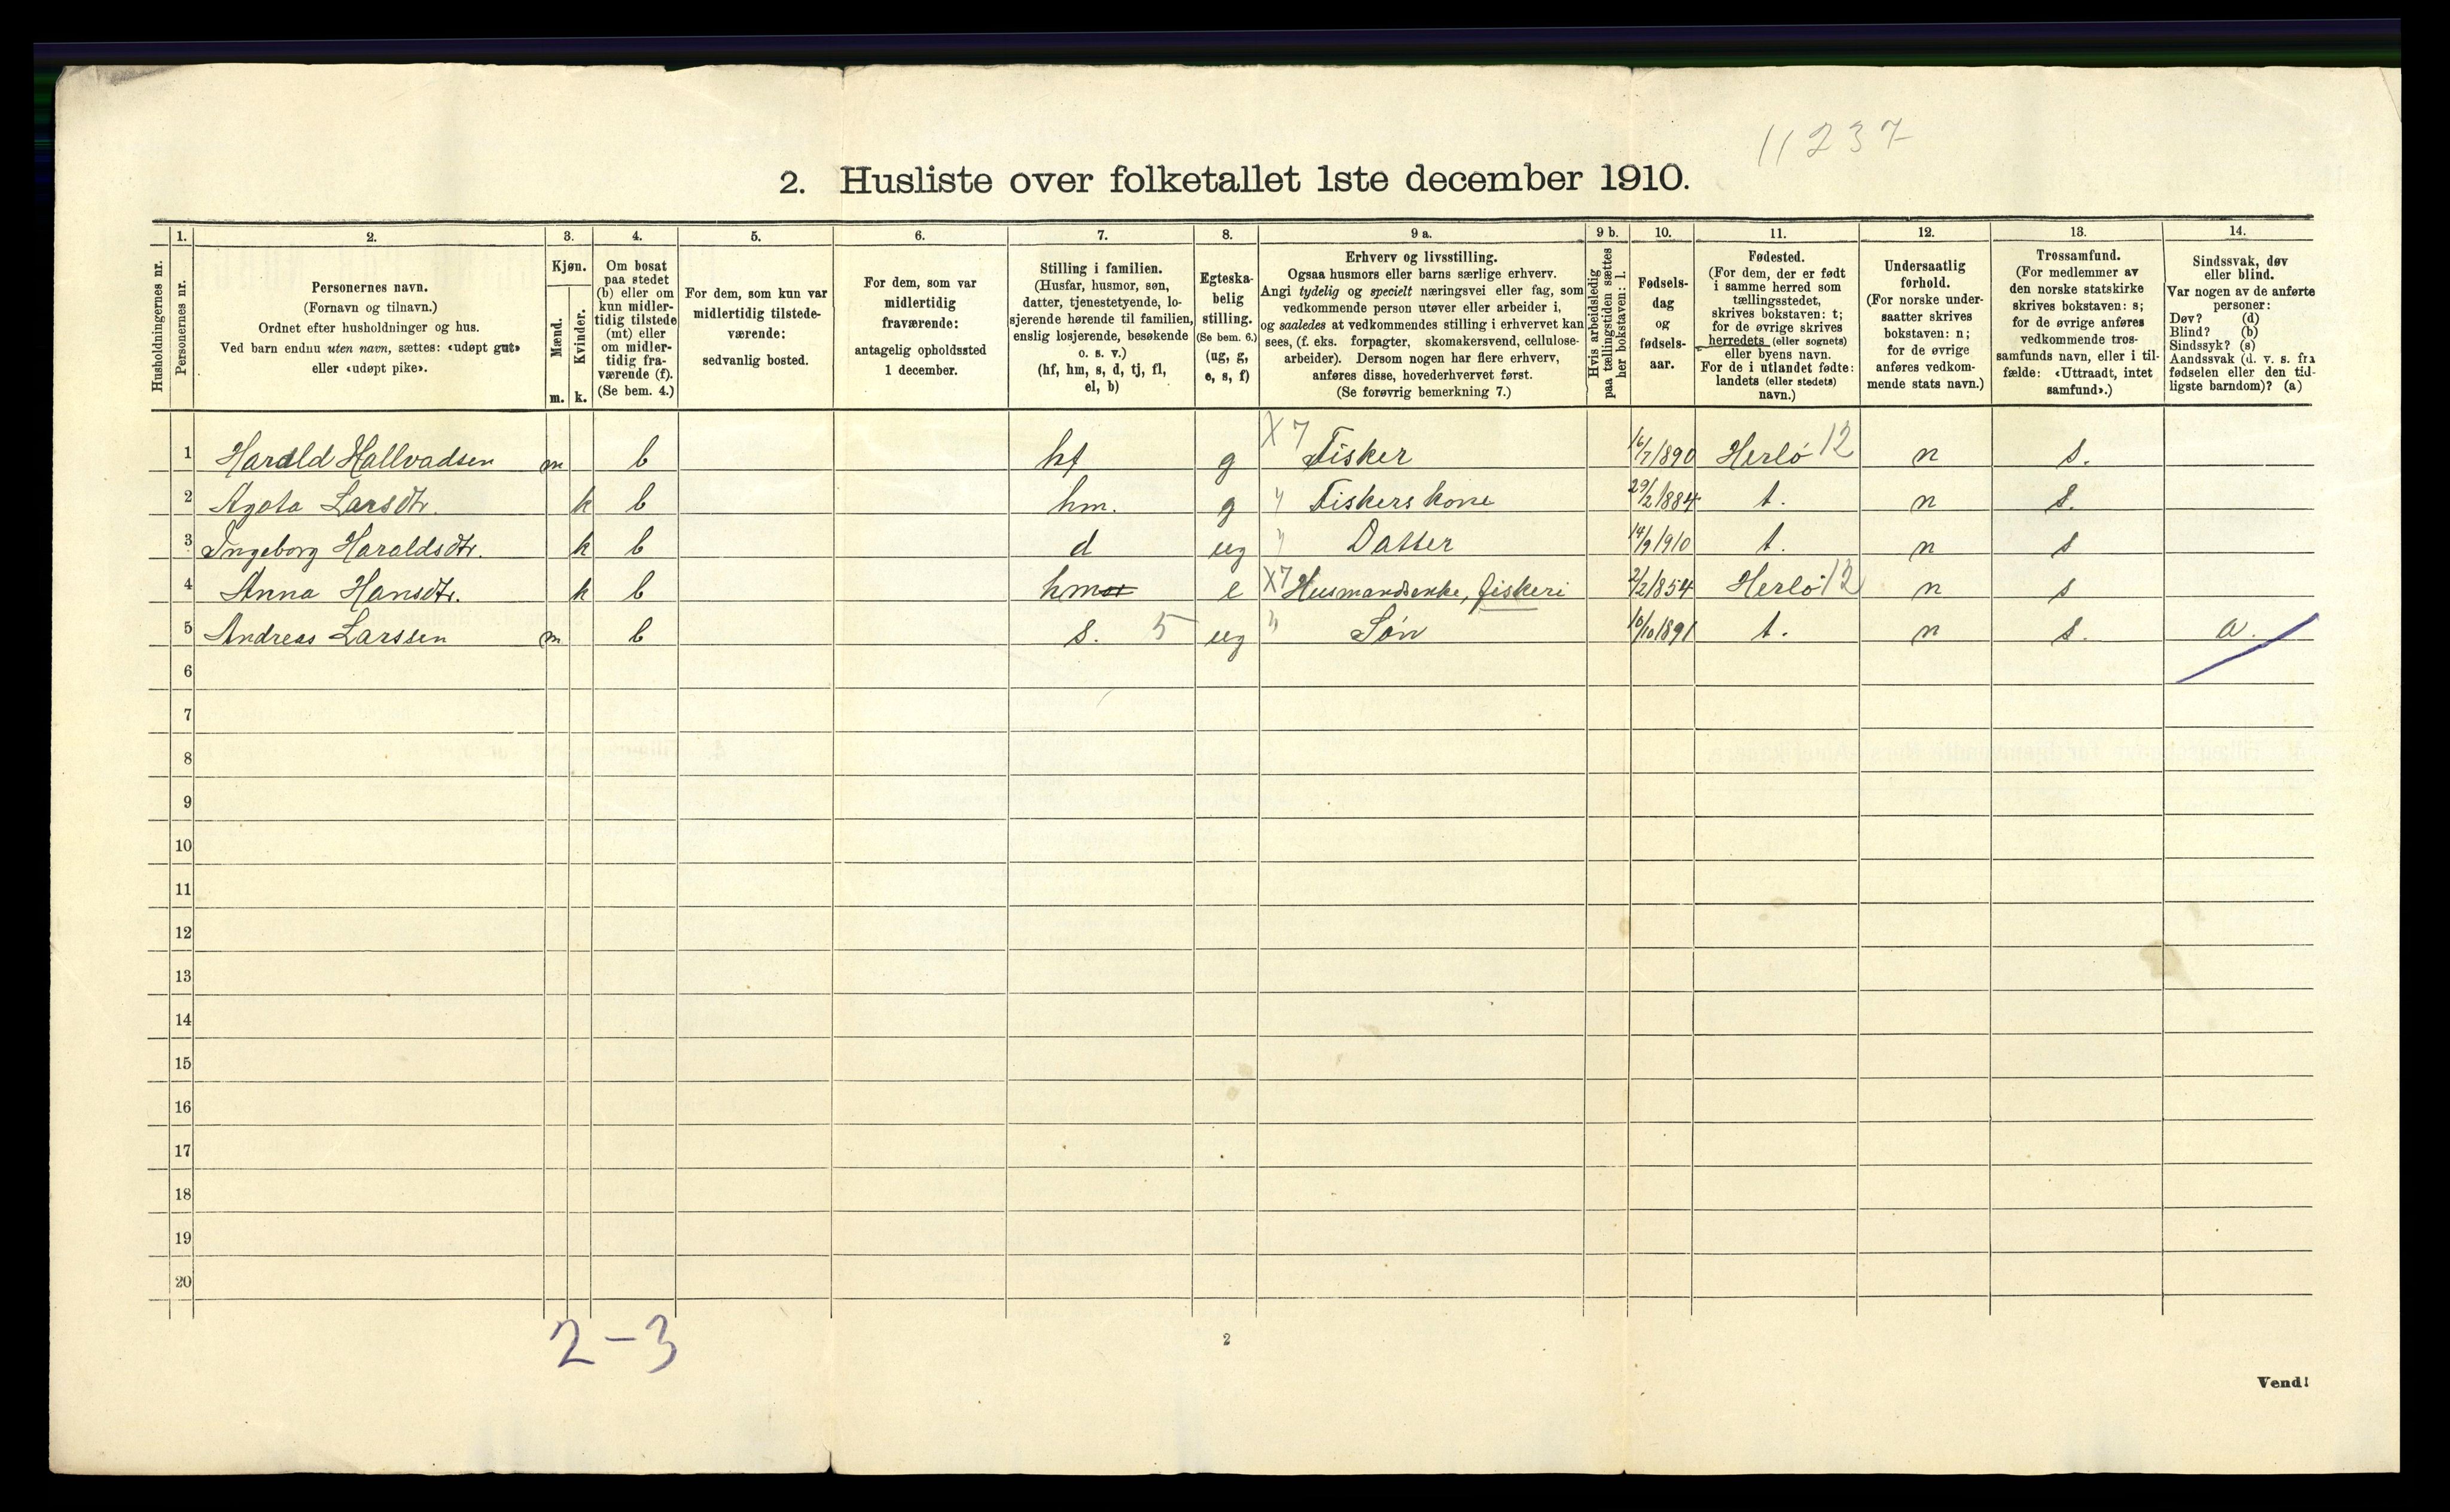 11237
2. Husliste over folketallet 1ste december 1910.
Husholdningernes nr.
1.
Personernes nr.
2.
Personernes navn.
(Fornavn og tilnavn.)
Ordnet efter husholdninger og hus.
Ved barn endnu uten navn, sættes: «udøpt gut»
eller «udøpt pike».
3.
Kjøn.
Mænd.
Kvinder.
m. k.
4.
Om bosat
paa stedet
(b) eller om
kun midler-
tidig tilstede
(mt) eller
om midler-
tidig fra-
værende (f).
(Se bem. 4.)
5.
For dem, som kun var
midlertidig tilstede-
værende:
sedvanlig bosted.
6.
For dem, som var
midlertidig
fraværende:
antagelig opholdssted
1 december.
7.
Stilling i familien.
(Husfar, husmor, søn,
datter, tjenestetyende, lo-
sjerende hørende til familien,
enslig losjerende, besøkende
o. s. v.)
(hf, hm, s, d, tj, fl,
el, b)
8.
Egteska-
belig
stilling.
(Se bem. 6.)
(ug, g,
e, s, f)
9 a.
Erhverv og livsstilling.
Ogsaa husmors eller barns særlige erhverv.
Angi tydelig og specielt næringsvei eller fag, som
vedkommende person utøver eller arbeider i,
og saaledes at vedkommendes stilling i erhvervet kan
sees, (f. eks. forpagter, skomakersvend, cellulose-
arbeider). Dersom nogen har flere erhverv,
anføres disse, hovederhvervet først.
(Se forøvrig bemerkning 7.)
9 b.
Hvis arbeidsledig
paa tællingstiden sættes
her bokstaven: l.
10.
Fødsels-
dag
og
fødsels-
aar.
11.
Fødested.
(For dem, der er født
i samme herred som
tællingsstedet,
skrives bokstaven: t;
for de øvrige skrives
herredets (eller sognets)
eller byens navn.
For de i utlandet fødte:
landets (eller stedets)
navn.)
12.
Undersaatlig
forhold.
(For norske under-
saatter skrives
bokstaven: n;
for de øvrige
anføres vedkom-
mende stats navn.)
13.
Trossamfund.
(For medlemmer av
den norske statskirke
skrives bokstaven: s;
for de øvrige anføres
vedkommende tros-
samfunds navn, eller i til-
fælde: «Uttraadt, intet
samfund».)
14.
Sindssvak, døv
eller blind.
Var nogen av de anførte
personer:
Døv? (d)
Blind? (b)
Sindssyk? (s)
Aandssvak (d. v. s. fra
fødselen eller den tid-
ligste barndom)? (a)
1 Harald Hallvadsen m b hf g X7 Fisker 16/7 1890 Herlö 12 n s.
2 Agota Larsdtr. k b hm. g " Fiskerskone 29/2 1884 t. n s.
3 Ingeborg Haraldsdtr. k b d ug " Datter 14/9 1910 t. n s
4 Anna Hansdtr. k b hm e X7 Husmandsenke, fiskeri 2/2 1854 Herlö 12 n s
5 Andreas Larssen m b s. 5 ug " Sön 10/10 1891 t. n s. a.
6
7
8
9
10
11
12
13
14
15
16
17
18
19
20
2-3
2
Vend!